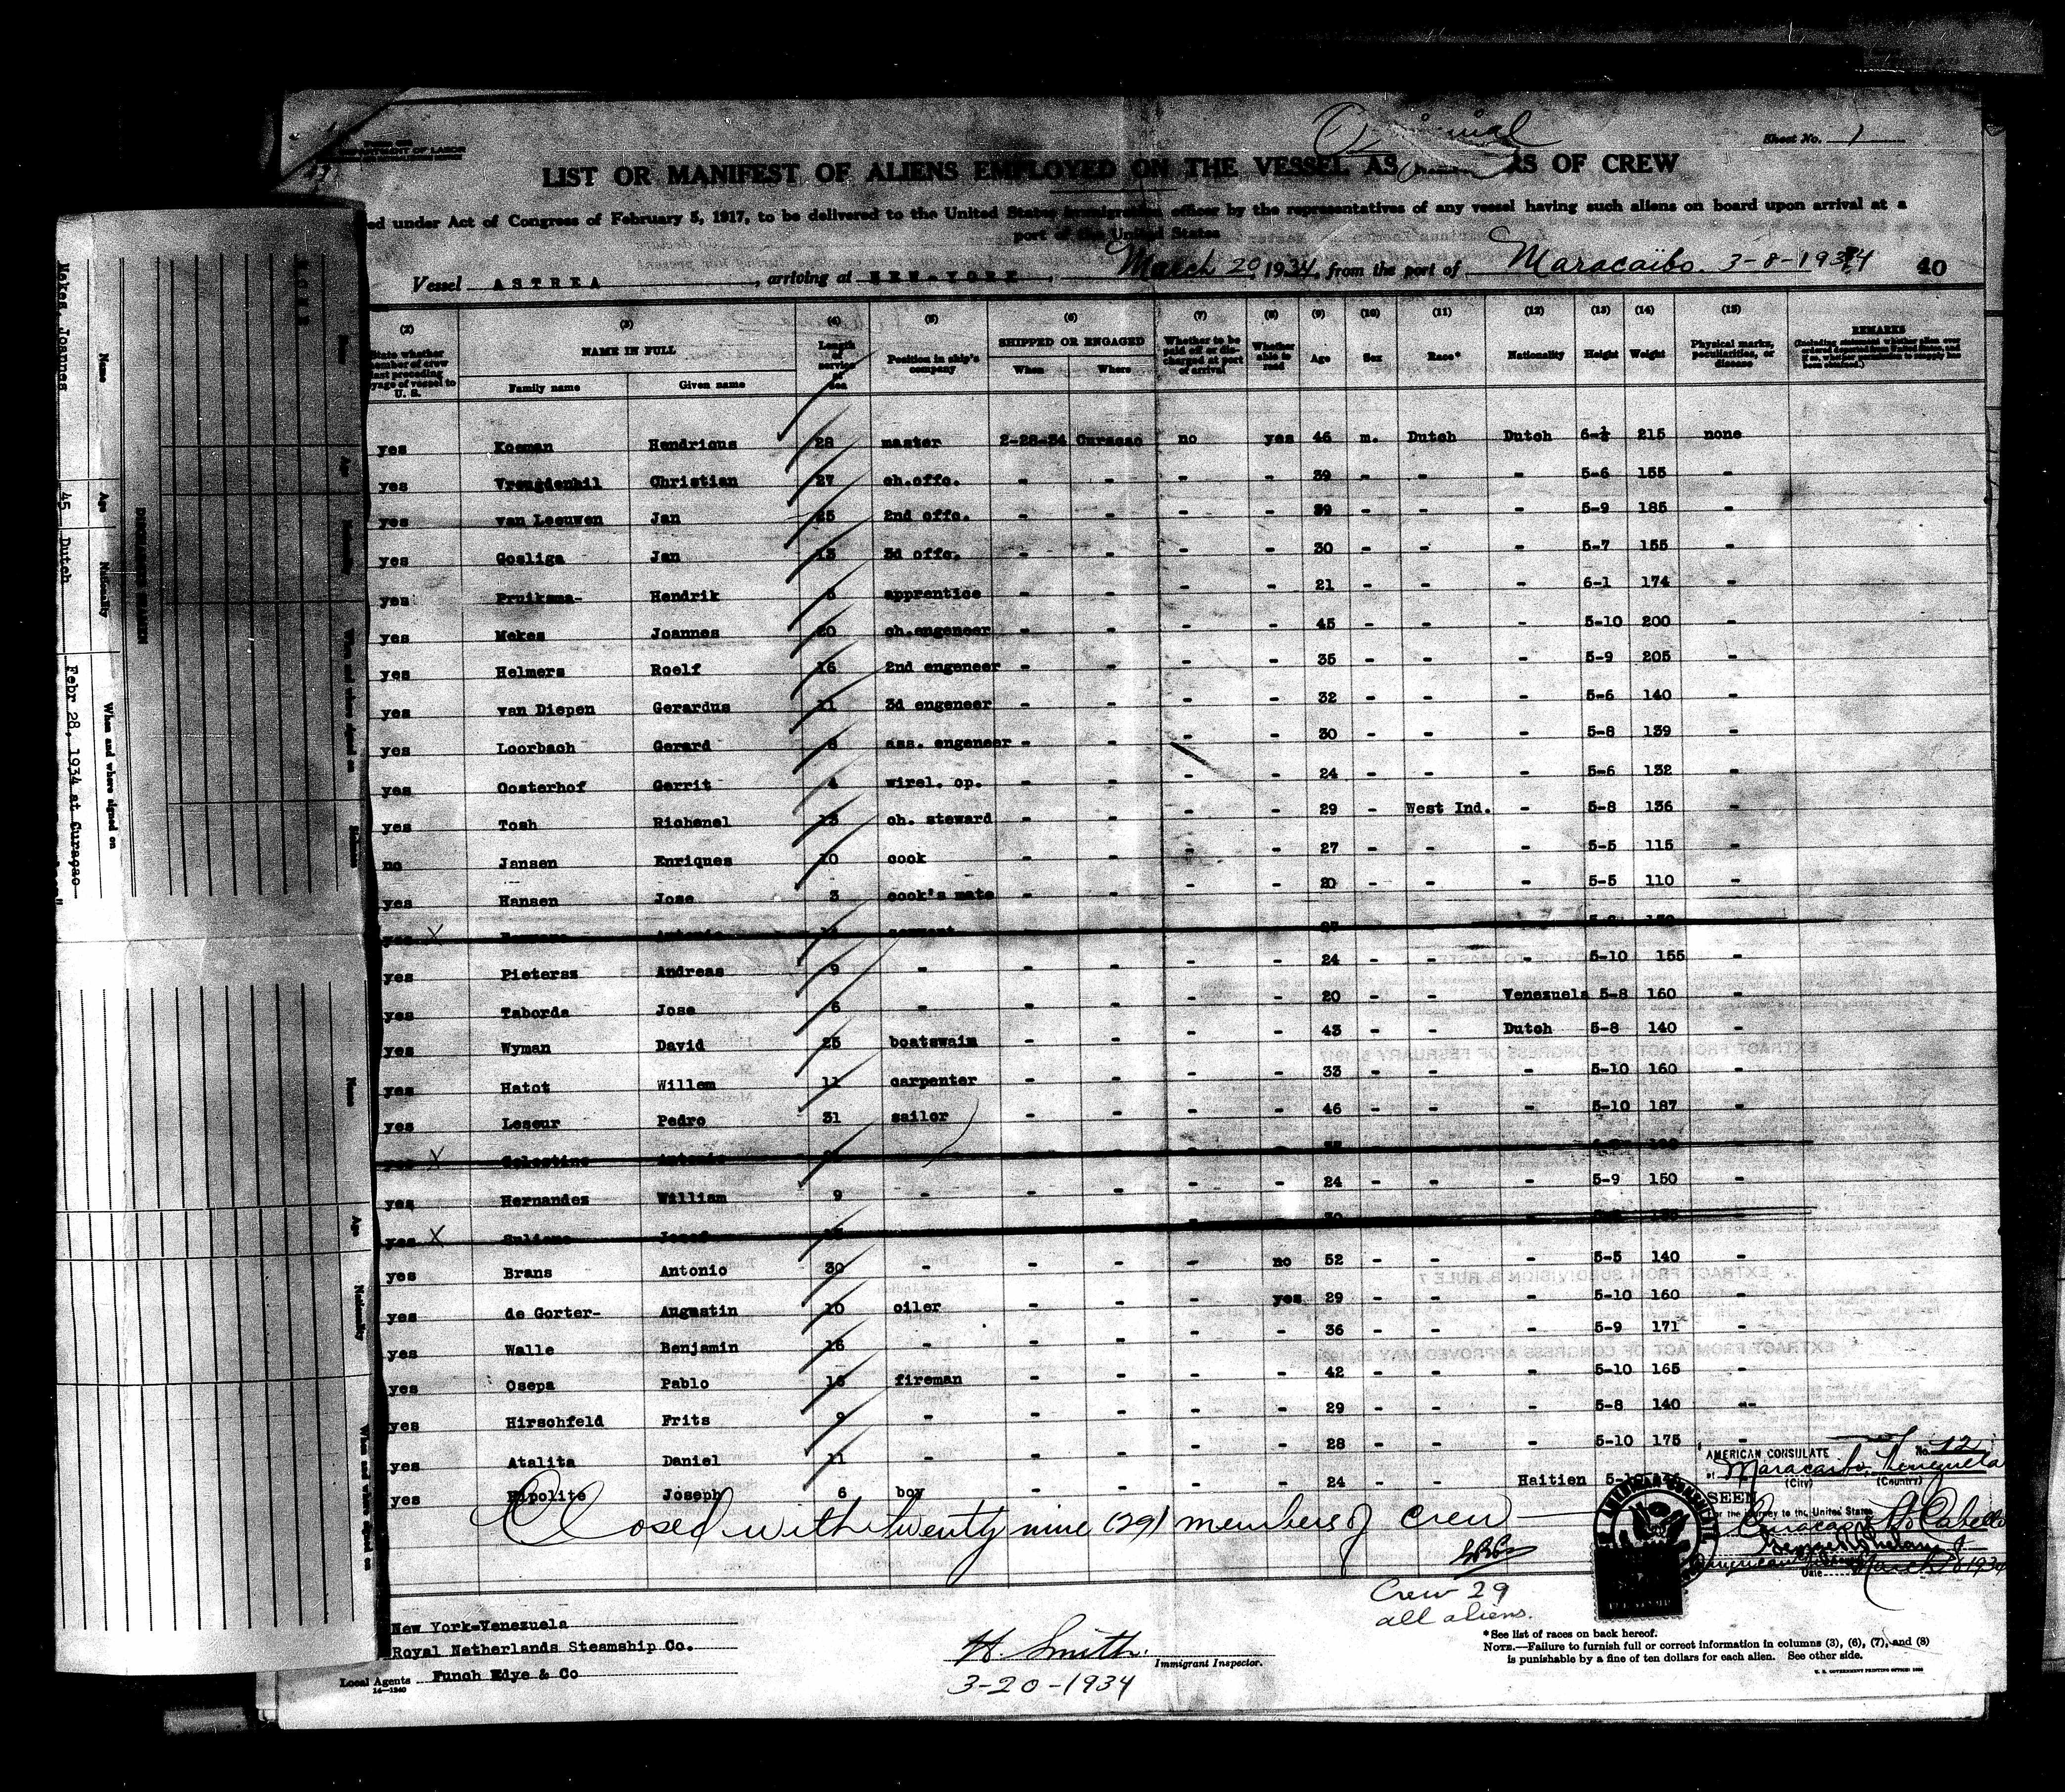 Original
Sheet No. 1
DEPARTMENT OF LABOR
LIST OR MANIFEST OF ALIENS EMPLOYED ON THE VESSEL AS RS OF CREW
ed under Act of Congress of February 5, 1917, to be delivered to the United States immigration officer by the representatives of any vessel having such aliens on board upon arrival at a
port of the United States
Vessel ASTREA, arriving at NEW-YORK, March 20, 1934, from the port of Maracaibo. 3-8-1934 40
(2) (3) (4) (5) (6) (7) (8) (9) (10) (11) (12) (13) (14) (15) REMARKS
State whether member of crew last preceding voyage of vessel to U. S. NAME IN FULL Family name Given name Length of service at sea Position in ship's company SHIPPED OR ENGAGED When Where Whether to be paid off or discharged at port of arrival Whether able to read Age Sex Race* Nationality Height Weight Physical marks, peculiarities, or disease
yes Koeman Hendricus 28 master 2-28-34 Curacao no yes 46 m. Dutch Dutch 6-½ 215 none
yes Vreugdenhil Christian 27 ch.offc. - - - - 39 - - - 5-6 155 -
yes van Leeuwen Jan 25 2nd offc. - - - - 39 - - - 5-9 185 -
yes Gosliga Jan 13 3d offc. - - - - 30 - - - 5-7 155 -
yes Pruiksma- Hendrik 5 apprentice - - - - 21 - - - 6-1 174 -
yes Mekes Joannes 20 ch.engeneer - - - - 45 - - - 5-10 200 -
yes Helmers Roelf 16 2nd engeneer - - - - 35 - - - 5-9 205 -
yes van Diepen Gerardus 11 3d engeneer - - - - 32 - - - 5-6 140 -
yes Loorbach Gerard 8 ass. engeneer - - - - 30 - - - 5-8 139 -
yes Oosterhof Gerrit 4 wirel. op. - - - - 24 - - - 5-6 132 -
yes Tosh Richenel 13 ch. steward - - - - 29 - West Ind. - 5-8 136 -
no Jansen Enriques 10 cook - - - - 27 - - - 5-5 115 -
yes Hansen Jose 3 cook's mate - - - - 20 - - - 5-5 110 -
yes X Antonio
yes Pietersz Andreas 9 - - - - - 24 - - - 5-10 155 -
yes Taborda Jose 6 - - - - - 20 - - Venezuela 5-8 160 -
yes Wyman David 25 boatswain - - - - 43 - - Dutch 5-8 140 -
yes Hatot Willem 11 carpenter - - - - 33 - - - 5-10 160 -
yes Leseur Pedro 31 sailor - - - - 46 - - - 5-10 187 -
yes X Celestino Antonio
yes Hernandez William 9 - - - - - 24 - - - 5-9 150 -
yes X Juliana Jozef
yes Brans Antonio 30 - - - - no 52 - - - 5-5 140 -
yes de Gorter- Augustin 10 oiler - - - yes 29 - - - 5-10 160 -
yes Walle Benjamin 16 - - - - - 36 - - - 5-9 171 -
yes Osepa Pablo 16 fireman - - - - 42 - - - 5-10 165 -
yes Hirschfeld Frits 9 - - - - - 29 - - - 5-8 140 --
yes Atalita Daniel 11 - - - - - 28 - - - 5-10 175 -
yes Hipolite Joseph 6 boy - - - - 24 - - Haitien
Closed with twenty nine (29) members of crew
AMERICAN CONSULATE No. 12
at Maracaibo, Venezuela
(City) (Country)
SEEN
For the journey to the United States
Curacao Pto Cabello
American
Date March 8 1934
Crew 29
all aliens.
New York-Venezuela
Royal Netherlands Steamship Co.
Local Agents Funch Edye & Co
16-1240
H. Smith. Immigrant Inspector.
3-20-1934
*See list of races on back hereof.
NOTE.—Failure to furnish full or correct information in columns (3), (6), (7), and (8)
is punishable by a fine of ten dollars for each alien. See other side.
U. S. GOVERNMENT PRINTING OFFICE
Name Age Nationality When and where signed on
Mekes, Joannes 45 Dutch Febr 28, 1934 at Curaçao
DISCHARGED SEAMEN
NONE
Name Age Nationality When and where signed on